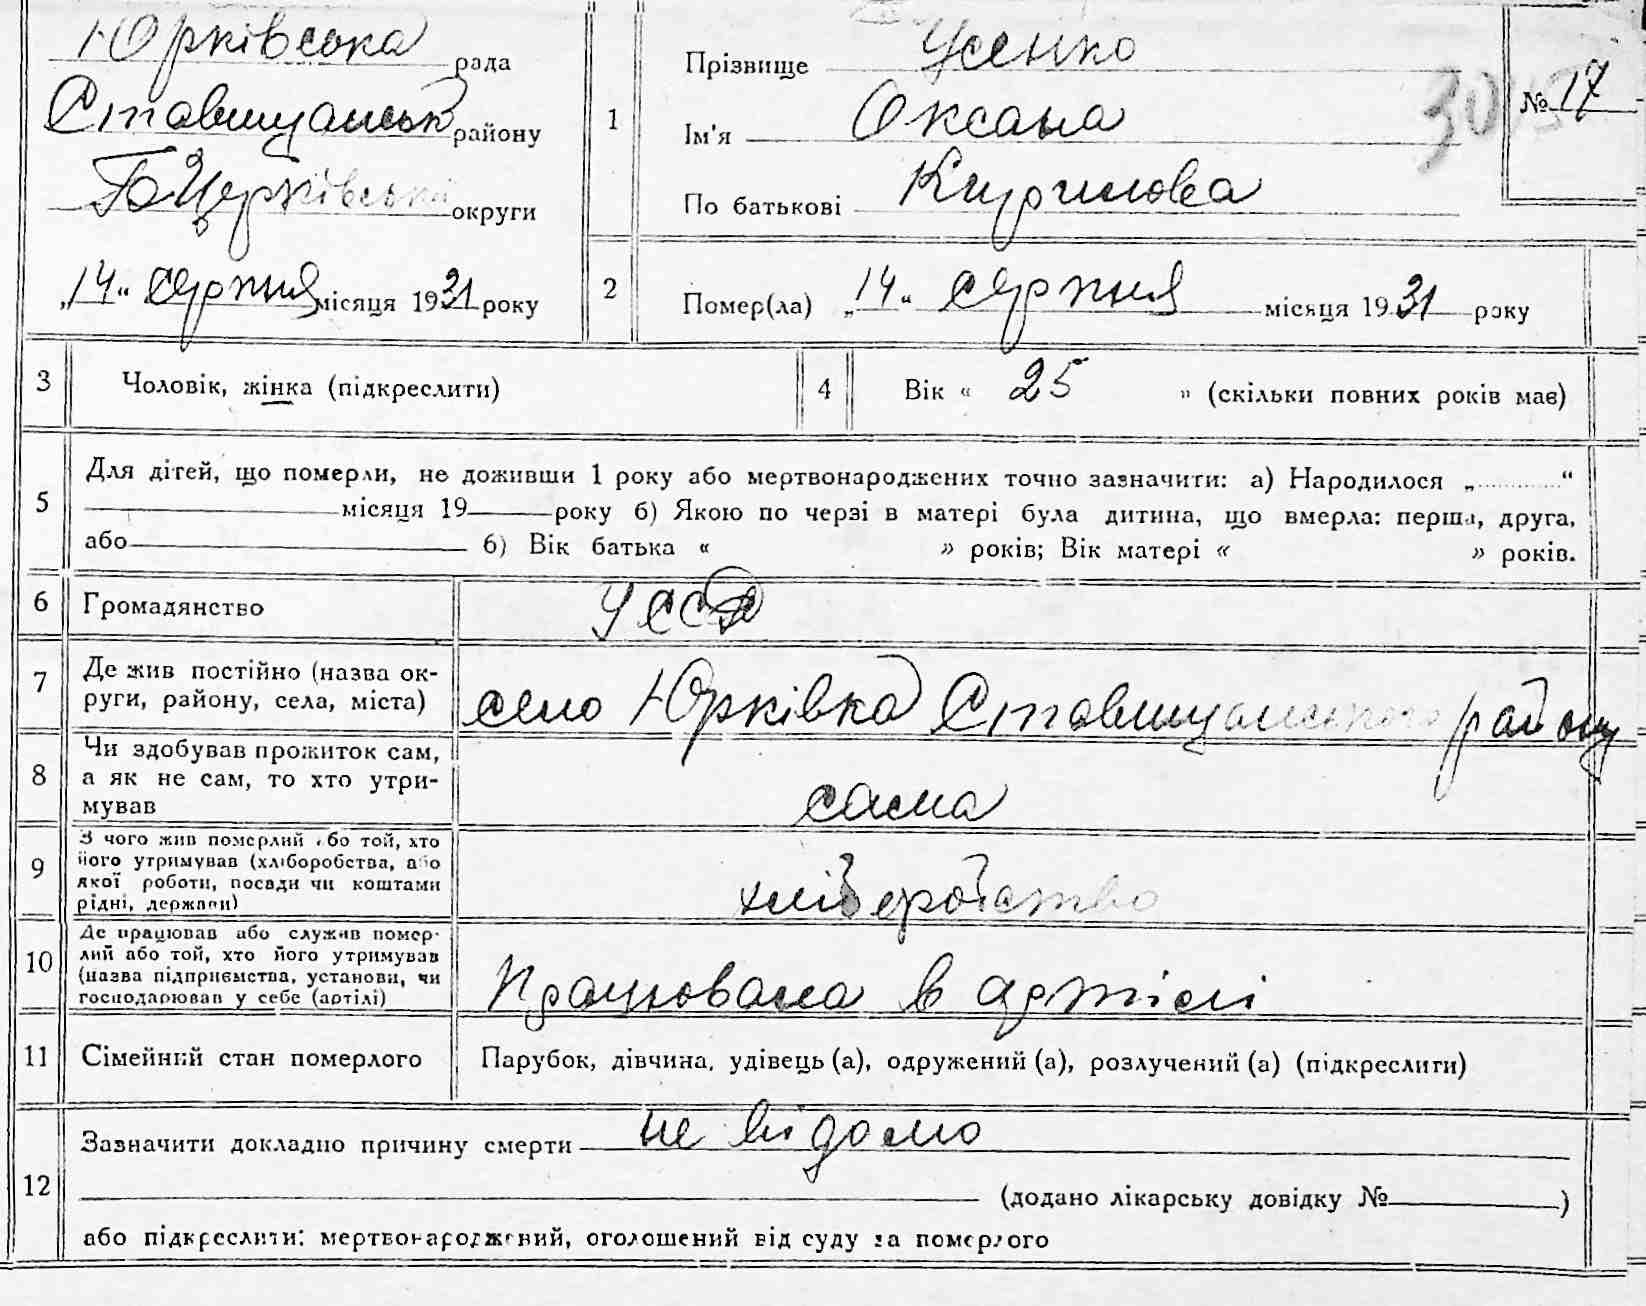 Юрківська рада
Ставищанськ району
Б Церківської округи
„14“ серпня місяця 1931 року
1
Прізвище Усенко
Ім'я Оксана
По батькові Кирилова
№ 17
2
Помер(ла) „14“ серпня місяця 1931 року
3
Чоловік, жінка (підкреслити)
4
Вік « 25 » (скільки повних років має)
5
Для дітей, що померли, не доживши 1 року або мертвонароджених точно зазначити: а) Народилося „ “
місяця 19 року б) Якою по черзі в матері була дитина, що вмерла: перша, друга,
або б) Вік батька « » років; Вік матері « » років.
6
Громадянство
УССР
7
Де жив постійно (назва ок-
руги, району, села, міста)
село Юрківка Ставищанського району
8
Чи здобував прожиток сам,
а як не сам, то хто утри-
мував
сама
9
З чого жив померлий або той, хто
його утримував (хліборобства, або
якої роботи, посади чи коштами
рідні, держави)
хліборобство
10
Де працював або служив помер-
лий або той, хто його утримував
(назва підприємства, установи, чи
господарював у себе (артілі)
Працювала в артілі
11
Сімейний стан померлого
Парубок, дівчина, удівець (а), одружений (а), розлучений (а) (підкреслити)
12
Зазначити докладно причину смерти не відомо
(додано лікарську довідку № )
або підкреслити: мертвонароджений, оголошений від суду за померлого